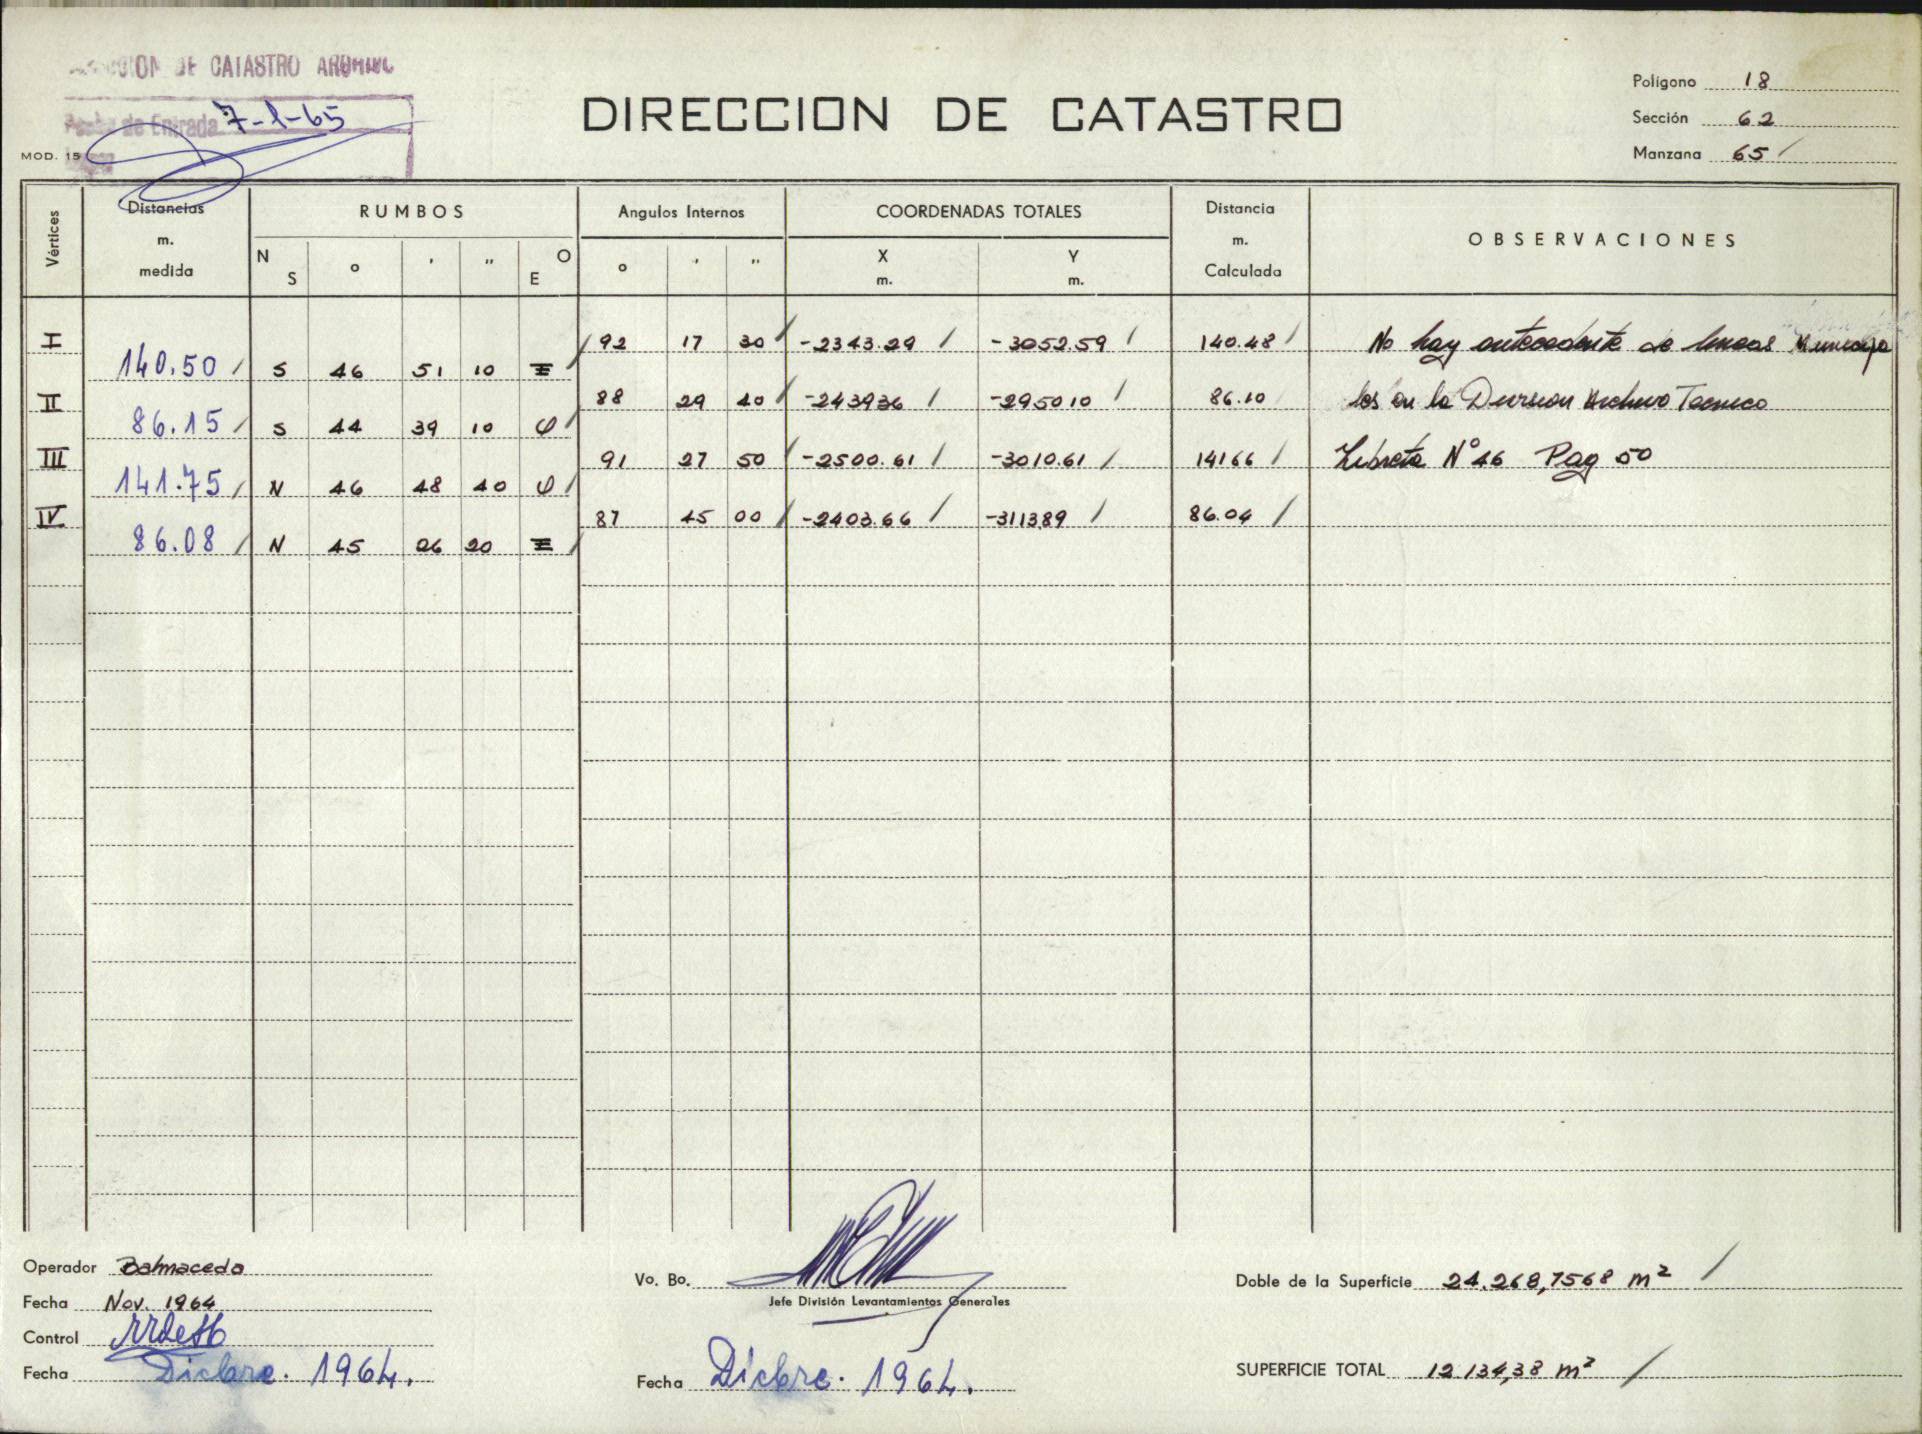 DE CATASTRO ARCHIVO
Fecha de Entrada 7-1-65
MOD. 15
DIRECCION DE CATASTRO
Polígono 18
Sección 62
Manzana 65 /
Vértices
Distancias m. medida
RUMBOS
N S ° ' " O E
Angulos Internos
° ' "
COORDENADAS TOTALES
X m. Y m.
Distancia m. Calculada
OBSERVACIONES
I 92 17 30 / -2343.29 / -3052.59 / 140.48 / No hay antecedente de lineas Municipa
140.50 / S 46 51 10 E /
II 88 29 40 / -243936 / -295010 / 86.10 les en la Division Archivo Tecnico
86.15 / S 44 39 10 O /
III 91 27 50 -2500.61 / -3010.61 / 14166 / Libreta Nº 46 Pag 50
141.75 / N 46 48 40 O /
IV 87 45 00 / -2403.66 / -311389 / 86.04 /
86.08 / N 45 06 20 E /
Operador Balmaceda
Fecha Nov. 1964
Control
Fecha Dicbre. 1964.
Vo. Bo.
Jefe División Levantamientos Generales
Fecha Dicbre. 1964.
Doble de la Superficie 24.268,7568 m² /
SUPERFICIE TOTAL 12 134,38 m² /